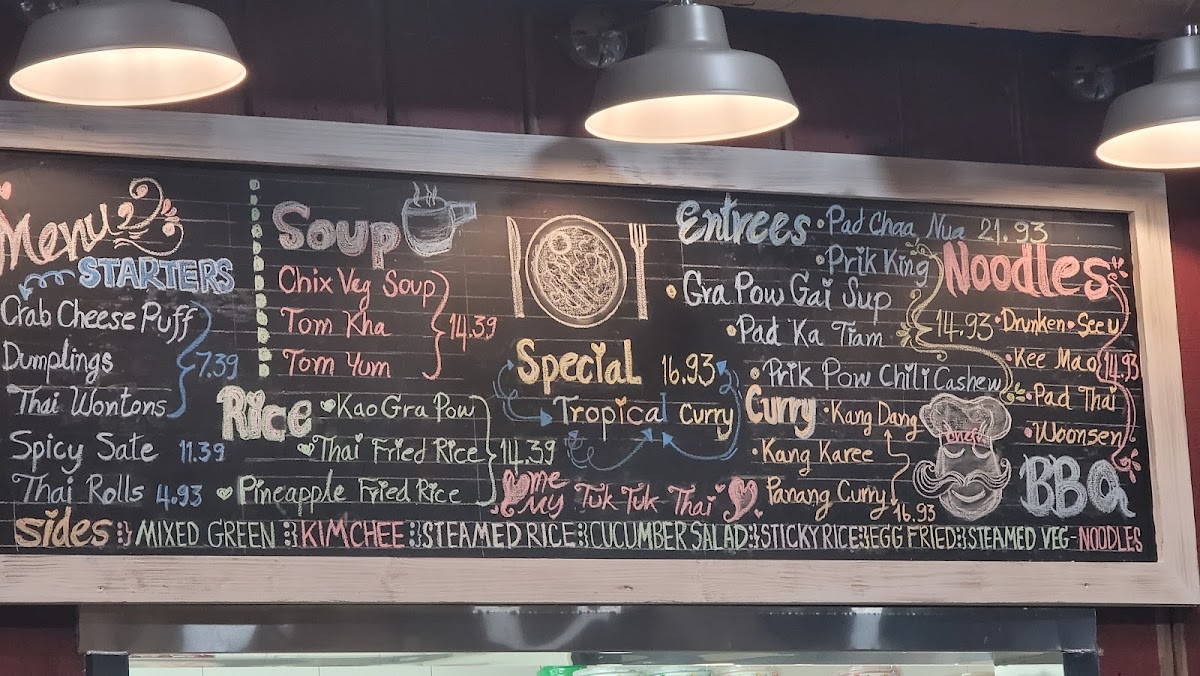 Menu
STARTERS
Crab Cheese Puff
Dumplings
Thai Wontons
7.39
Spicy Sate 11.39
Thai Rolls 4.93
Soup
Chix Veg Soup
Tom Kha
Tom Yum
14.39
Rice
Kao Gra Pow
Thai Fried Rice
Pineapple Fried Rice
14.39
Special 16.93
Tropical Curry
me
My Tuk Tuk Thai
Entrees
Pad Chaa Nua 21.93
Prik King
Gra Pow Gai Sup
Pad Ka Tiam
Prik Pow Chili Cashew
14.93
Curry
Kang Dang
Kang Karee
Panang Curry
16.93
Noodles
Drunken See u
Kee Mao
Pad Thai
Woonsen
14.93
chef
BBQ
Sides MIXED GREEN KIMCHEE STEAMED RICE CUCUMBER SALAD STICKY RICE EGG FRIED STEAMED VEG-NOODLES